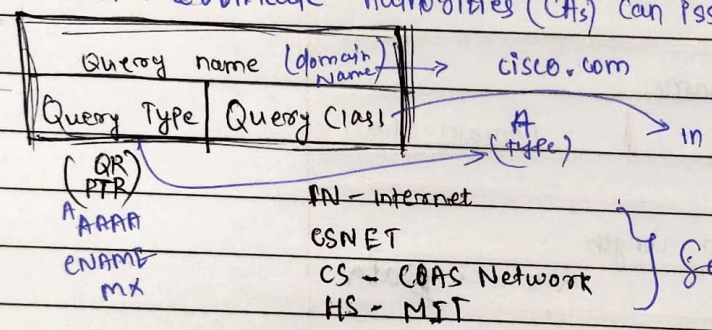 (CAs) can
Query name (domain Name) → cisco.com
Query Type | Query Class → in
A (type)
(QR PTR)
A AAAA
CNAME
MX
IN - Internet
CSNET
CS - COAS Network
HS - MIT